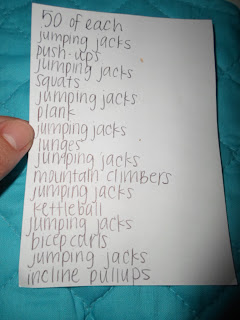 50 of each
jumping jacks
push-ups
jumping jacks
squats
jumping jacks
plank
jumping jacks
lunges
jumping jacks
mountain climbers
jumping jacks
kettleball
jumping jacks
bicep curls
jumping jacks
incline pullups